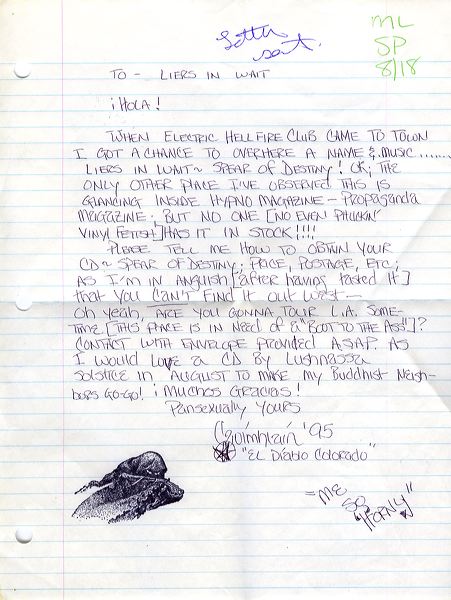 Letter
sent.
ML
SP
8/18
TO - LIERS IN WAIT
¡HOLA!
WHEN ELECTRIC HELLFIRE CLUB CAME TO TOWN
I GOT A CHANCE TO OVERHERE A NAME & MUSIC.......
LIERS IN WAIT~ SPEAR OF DESTINY! OK; THE
ONLY OTHER PLACE I'VE OBSERVED THIS IS
GLANCING INSIDE HYPNO MAGAZINE - PROPAGANDA
MAGAZINE; BUT NO ONE [NO EVEN PHUCKIN'
VINYL FETISH] HAS IT IN STOCK!!!!
PLEASE TELL ME HOW TO OBTAIN YOUR
CD~ SPEAR OF DESTINY; PLACE, POSTAGE, ETC;
AS I'M IN ANGUISH [after having tasted it]
that you CAN'T FIND IT OUT WEST—
Oh yeah, ARE YOU GONNA TOUR L.A. SOME-
TIME [THIS PLACE IS IN NEED OF A "BOOT TO THE ASS"]?
CONTACT WITH ENVELOPE PROVIDED A.S.A.P. AS
I WOULD LOVE a CD BY
SOLSTICE IN AUGUST TO MAKE my BUDDHIST NEIGH-
BORS GO-GO! ¡MUCHOS GRACIAS!
PANSEXUALLY YOURS
'95
"EL DIABLO COLORADO"
"ME
SO
HORNY"